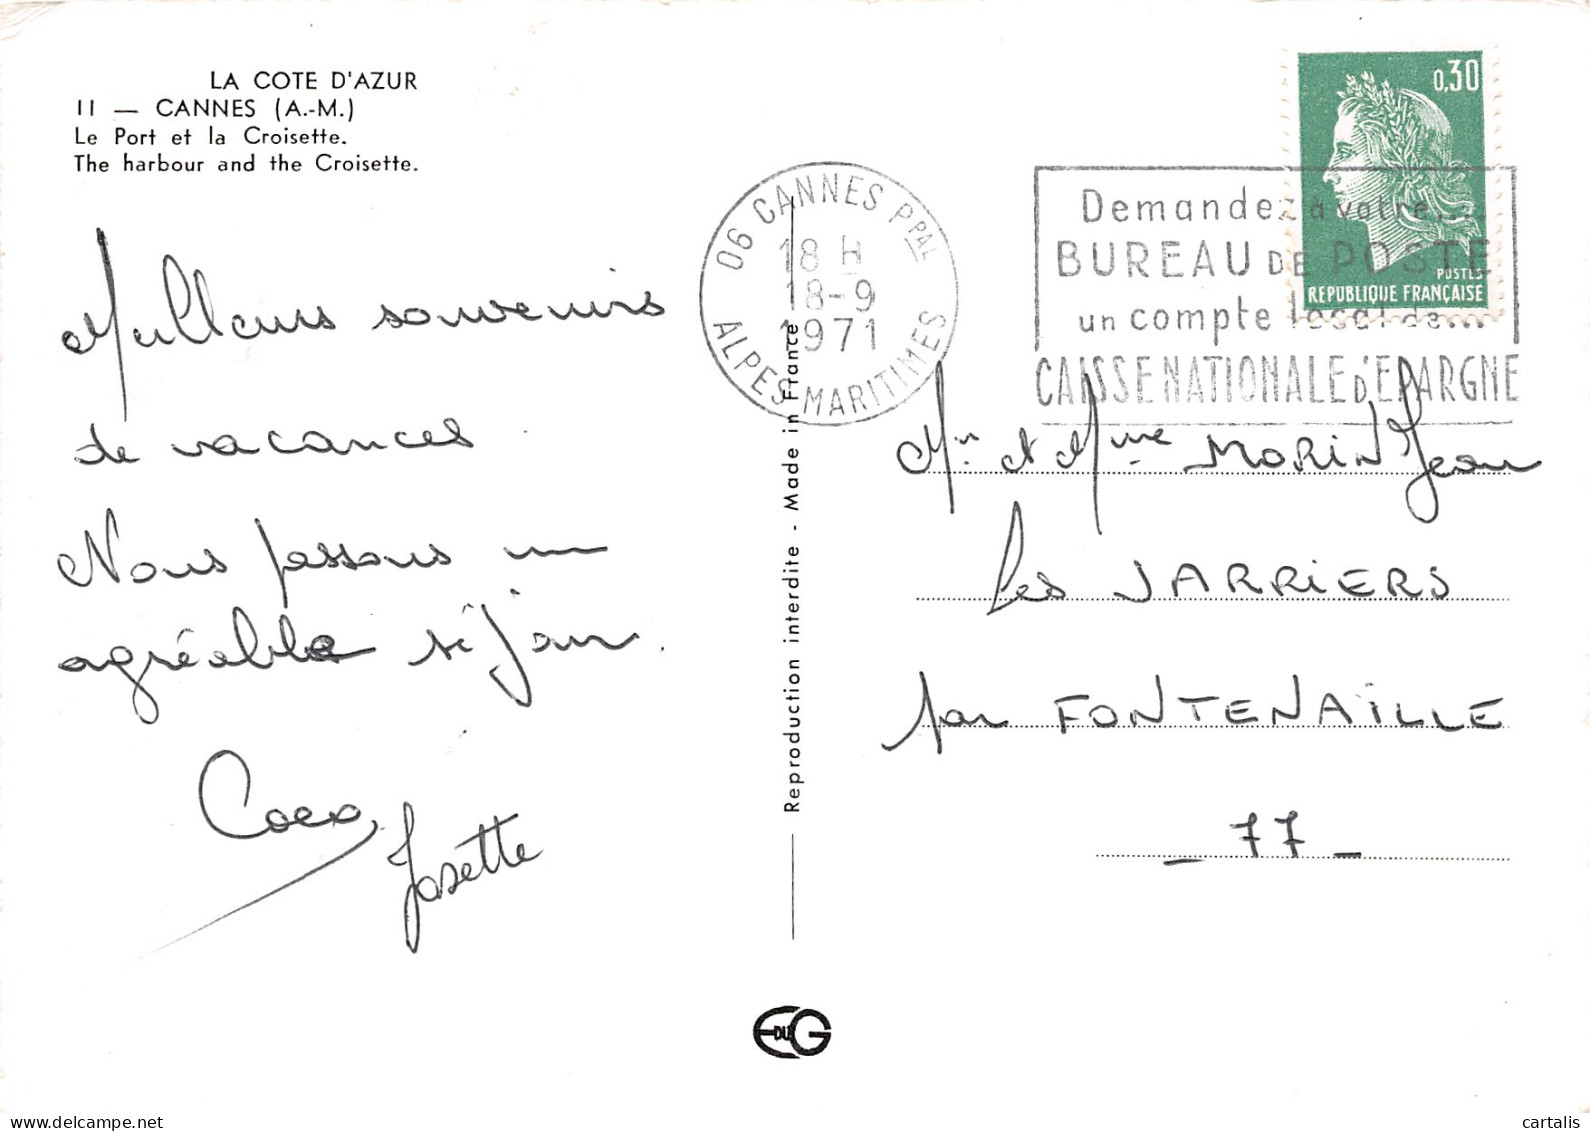 LA COTE D'AZUR
11 — CANNES (A.-M.)
Le Port et la Croisette.
The harbour and the Croisette.
Meilleurs souvenirs
de vacances
Nous passons un
agréable séjour.
Coco
Josette
Reproduction interdite - Made in France
EDUG
06 CANNES PPAL
18 H
18-9
1971
ALPES MARITIMES
Demandez à votre....
BUREAU DE POSTE
un compte local de...
CAISSE NATIONALE D'EPARGNE
0,30
POSTES
REPUBLIQUE FRANÇAISE
Mr et Mme MORIN Jean
Les JARRIERS
par FONTENAILLE
_ 77 _
delcampe.net
cartalis